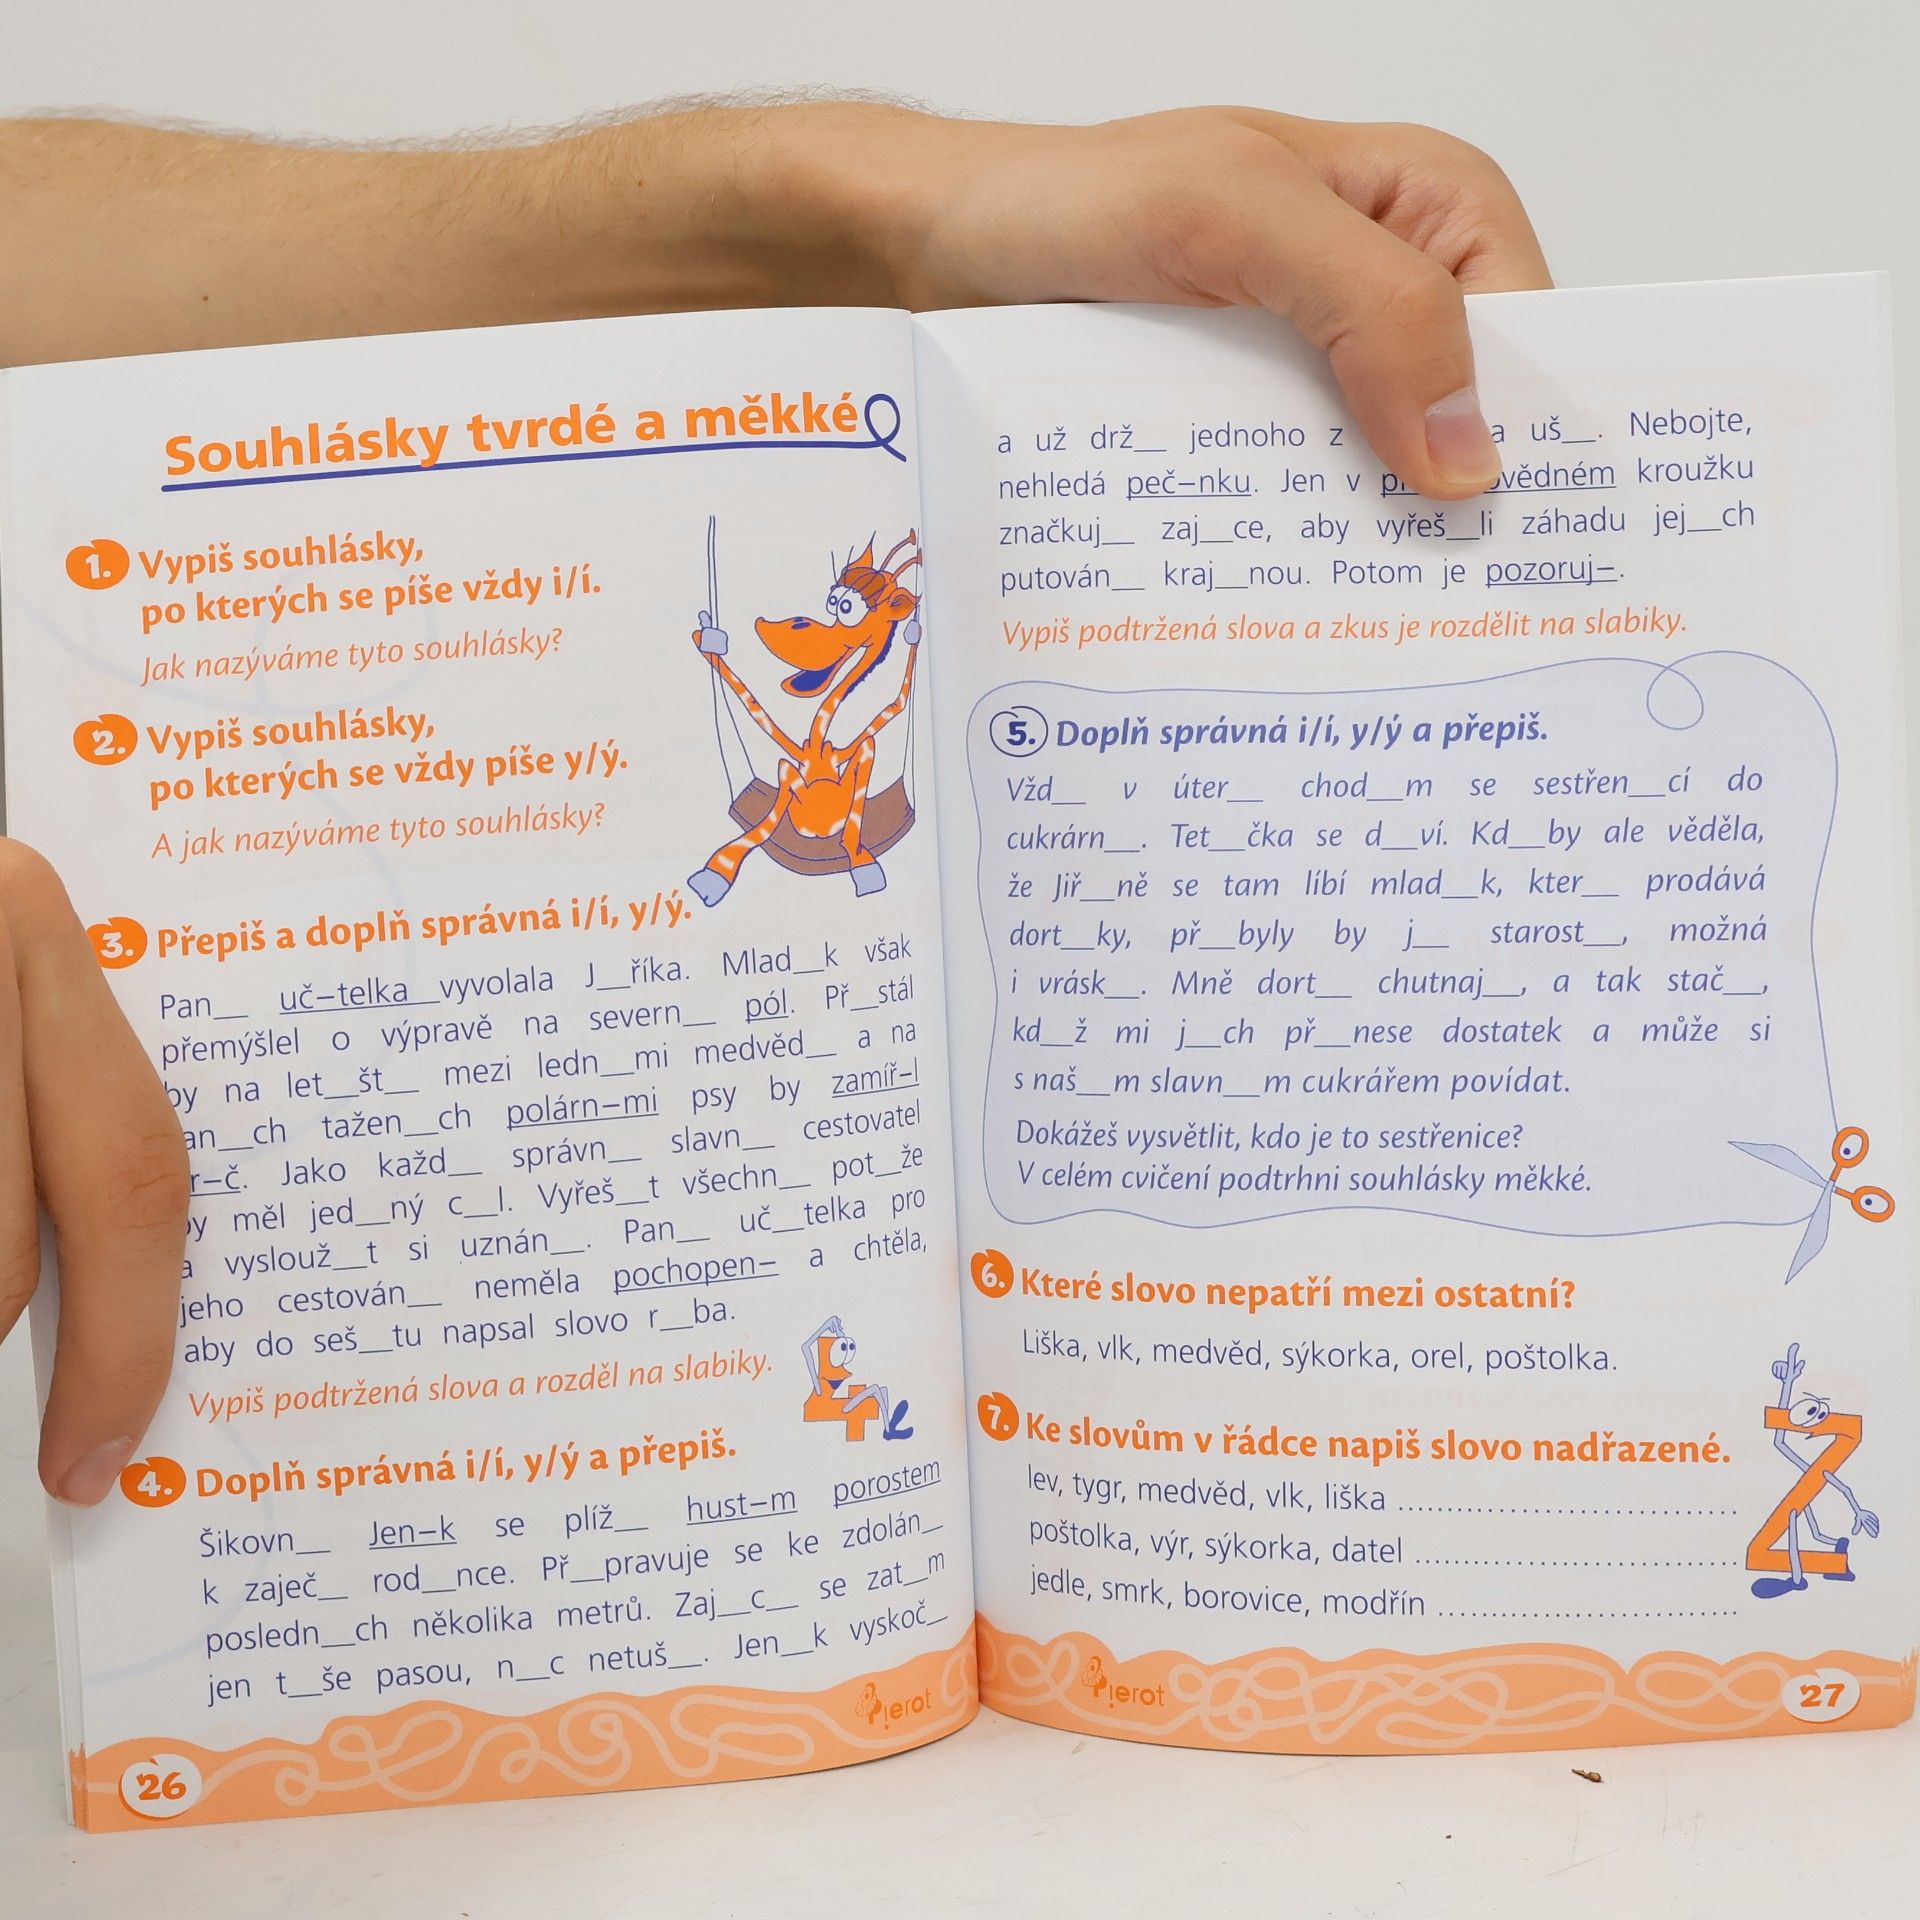 Souhlásky tvrdé a měkké
1. Vypiš souhlásky,
po kterých se píše vždy i/í.
Jak nazýváme tyto souhlásky?
2. Vypiš souhlásky,
po kterých se vždy píše y/ý.
A jak nazýváme tyto souhlásky?
3. Přepiš a doplň správná i/í, y/ý.
Pan__ uč–telka vyvolala J__říka. Mlad__k však
přemýšlel o výpravě na severn__ pól. Př__stál
by na let__št__ mezi ledn__mi medvěd__ a na
an__ch tažen__ch polárn–mi psy by zamíř–l
r–č. Jako každ__ správn__ slavn__ cestovatel
by měl jed__ný c__l. Vyřeš__t všechn__ pot__že
a vyslouž__t si uznán__. Pan__ uč__telka pro
jeho cestován__ neměla pochopen– a chtěla,
aby do seš__tu napsal slovo r__ba.
Vypiš podtržená slova a rozděl na slabiky.
4. Doplň správná i/í, y/ý a přepiš.
Šikovn__ Jen–k se plíž__ hust–m porostem
k zaječ__ rod__nce. Př__pravuje se ke zdolán__
posledn__ch několika metrů. Zaj__c__ se zat__m
jen t__še pasou, n__c netuš__. Jen__k vyskoč__
Pierot
26
a už drž__ jednoho z a uš__. Nebojte,
nehledá peč–nku. Jen v vědném kroužku
značkuj__ zaj__ce, aby vyřeš__li záhadu jej__ch
putován__ kraj__nou. Potom je pozoruj–.
Vypiš podtržená slova a zkus je rozdělit na slabiky.
5. Doplň správná i/í, y/ý a přepiš.
Vžd__ v úter__ chod__m se sestřen__cí do
cukrárn__. Tet__čka se d__ví. Kd__by ale věděla,
že Jiř__ně se tam líbí mlad__k, kter__ prodává
dort__ky, př__byly by j__ starost__, možná
i vrásk__. Mně dort__ chutnaj__, a tak stač__,
kd__ž mi j__ch př__nese dostatek a může si
s naš__m slavn__m cukrářem povídat.
Dokážeš vysvětlit, kdo je to sestřenice?
V celém cvičení podtrhni souhlásky měkké.
6. Které slovo nepatří mezi ostatní?
Liška, vlk, medvěd, sýkorka, orel, poštolka.
7. Ke slovům v řádce napiš slovo nadřazené.
lev, tygr, medvěd, vlk, liška ........................................
poštolka, výr, sýkorka, datel ........................................
jedle, smrk, borovice, modřín ........................................
Pierot
27